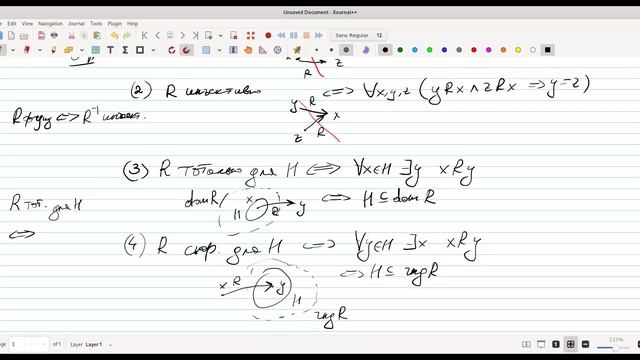 Unsaved Document - Xournal++
File Edit View Navigation Journal Tools Plugin Help
Sans Regular 12
R z
(2) R инъективно ⟺ ∀x,y,z (yRx ∧ zRx ⟹ y=z)
y R x
z R
R функ ⟺ R⁻¹ инъект.
(3) R тотально для H ⟺ ∀x∈H ∃y xRy
dom R x H R y ⟺ H ⊆ dom R
R тот. для H
⟺
(4) R сюр. для H ⟺ ∀y∈H ∃x xRy
⟺ H ⊆ rng R
x R y H
rng R
Page 1 of 1 Layer Layer 1
133%